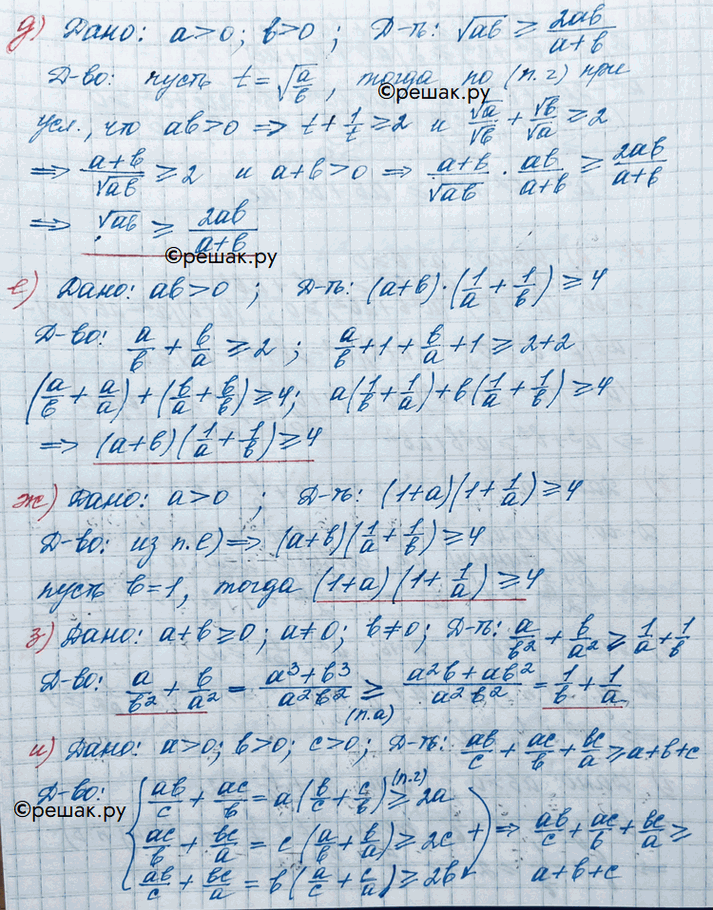 д) Дано: a>0; b>0; Д-ть: √ab ≥ 2ab/(a+b)
Д-во: пусть t = √(a/b), тогда по (п.г) при
©решак.ру
усл., что ab>0 => t + 1/t ≥ 2 и √a/√b + √b/√a ≥ 2
=> (a+b)/√ab ≥ 2 и a+b>0 => (a+b)/√ab · ab/(a+b) ≥ 2ab/(a+b)
=> √ab ≥ 2ab/(a+b)
©решак.ру
е) Дано: ab>0; Д-ть: (a+b)·(1/a + 1/b) ≥ 4
Д-во: a/b + b/a ≥ 2; a/b + 1 + b/a + 1 ≥ 2+2
(a/b + a/a) + (b/a + b/b) ≥ 4; a(1/b + 1/a) + b(1/a + 1/b) ≥ 4
=> (a+b)(1/a + 1/b) ≥ 4
ж) Дано: a>0; Д-ть: (1+a)(1 + 1/a) ≥ 4
Д-во: из п.е) => (a+b)(1/a + 1/b) ≥ 4
пусть b=1, тогда (1+a)(1 + 1/a) ≥ 4
з) Дано: a+b≥0; a≠0; b≠0; Д-ть: a/b² + b/a² ≥ 1/a + 1/b
Д-во: a/b² + b/a² = (a³+b³)/(a²b²) ≥ (a²b+ab²)/(a²b²) = 1/b + 1/a
(п.а)
и) Дано: a>0; b>0; c>0; Д-ть: ab/c + ac/b + bc/a ≥ a+b+c
Д-во: { ab/c + ac/b = a(b/c + c/b) ≥ 2a (п.г)
©решак.ру
ac/b + bc/a = c(a/b + b/a) ≥ 2c + ) => ab/c + ac/b + bc/a ≥
ab/c + bc/a = b(a/c + c/a) ≥ 2b a+b+c